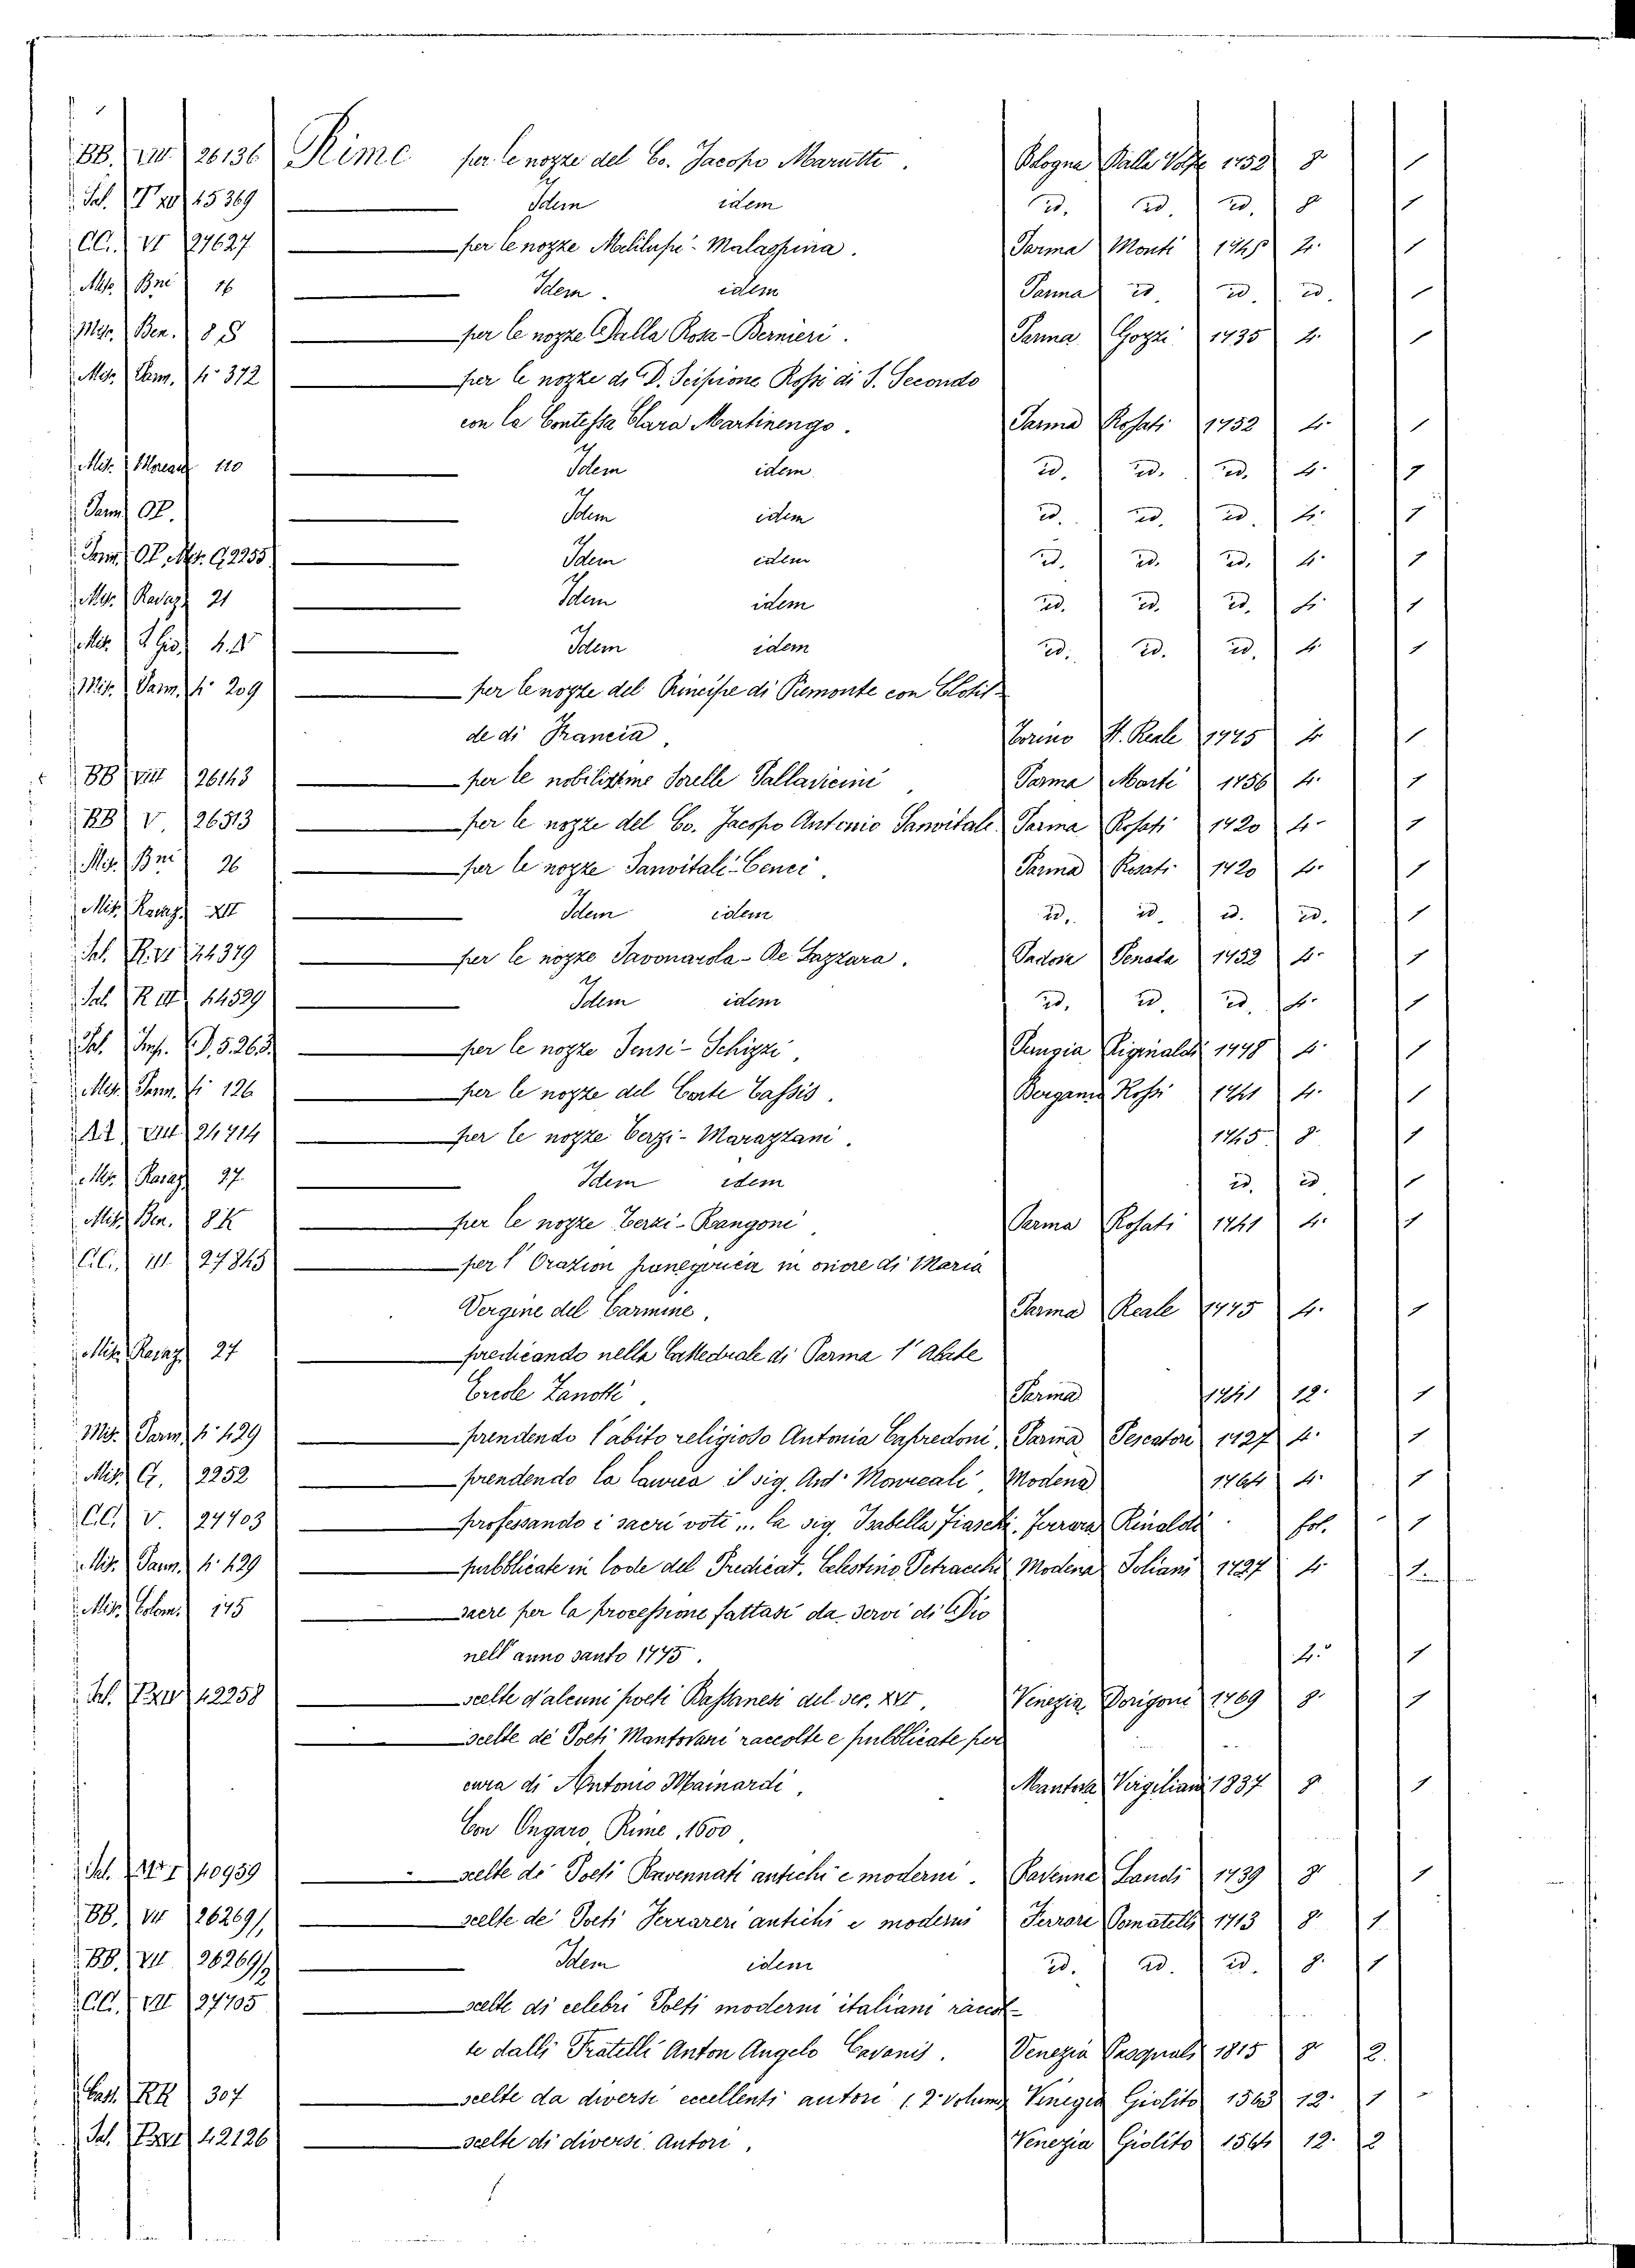 BB. VII 26136 Rime per le nozze del Co. Jacopo Marutti. Bologna Dalla Volpe 1752 8 1
Sal. 45369 Idem idem id. id. id. 8 1
CC. VI 27627 per le nozze Melilupi-Malaspina. Parma Monti 4. 1
Misc. Bni 16 Idem. idem Parma id. id. id. 1
Misc. Ben. 88 per le nozze Dalla Rosa-Bernieri. Parma Gozzi 1735 4. 1
Misc. Parm. 4° 372 per le nozze di D. Scipione Rossi di S. Secondo
con la Contessa Clara Martinengo. Parma Rosati 1752 4. 1
Misc. Moreau 110 Idem idem id. id. id. 4. 1
Parm. OP. Idem idem id. id. id. 4. 1
Parm. OP. Misc. G. 2255 Idem idem id. id. id. 4. 1
Misc. Ravaz. 21 Idem idem id. id. id. 4. 1
Misc. S. Gio. Idem idem id. id. id. 4. 1
Misc. Parm. 4° 209 per le nozze del Principe di Piemonte con Clotil-
de di Francia, Torino St. Reale 1775 4 1
BB VIII 26143 per le nobilissime Sorelle Pallavicini, Parma Monti 1756 4. 1
BB V. 26513 per le nozze del Co. Jacopo Antonio Sanvitale. Parma Rosati 1720 4. 1
Misc. Bni 26 per le nozze Sanvitali-Cenci. Parma Rosati 1720 4. 1
Misc. Ravaz. XII Idem idem id. id. id. id. 1
Sal. R. VI 44379 per le nozze Savonarola-De Lazzara. Padova Penada 1752 4. 1
Sal. R III 44539 Idem idem id. id. id. 4. 1
Sal. Imp. D. 5.263. per le nozze Sensi-Schizzi, 4. 1
Misc. Parm. 4° 126 per le nozze del Conte Tassis. Bergamo Rossi 1741 4. 1
VIII 24714 per le nozze Terzi-Marazzani. 1745 8 1
Misc. Ravaz. 27. Idem idem id. id 1
Misc. Ben. 8K per le nozze Terzi-Rangoni, Parma Rosati 1741 4. 1
CC. III. 27845 per l'Orazion panegirica in onore di Maria
Vergine del Carmine, Parma Reale 1775 4. 1
Misc. Ravaz. 27 predicando nella Cattedrale di Parma l'Abate
Ercole Zanotti, Parma 1741 12. 1
Misc. Parm. 4° 429 prendendo l'abito religioso Antonia Capredoni, Parma Pescatori 1727 4. 1
Misc. G. 2252 prendendo la laurea il sig. Ant. Monreali, Modena 1764 4. 1
CC. V. 27703 professando i sacri voti ... la sig. Isabella Fiaschi, Ferrara Rinaldi fol. 1
Misc. Parm. 4° 429 pubblicate in lode del Predicat. Celestino Petracchi Modena Soliani 1727 4 1
Misc. Colom. 175 sacre per la processione fattasi da Servi di Dio
nell'anno santo 1775. 4° 1
Sal. 42258 scelte d'alcuni poeti Bassanesi del sec. XVI, Venezia Dorigoni 1769 8. 1
scelte de' Poeti Mantovani raccolte e pubblicate per
cura di Antonio Mainardi, Mantova Virgiliani 1837 8 1
Con Ongaro, Rime, 1600,
Sal. 40959 scelte de' Poeti Ravennati antichi e moderni. Ravenna Landi 1739 8 1
BB. VII 26269/1 scelte de' Poeti Ferraresi antichi e moderni Ferrara Pomatelli 1713 8. 1
BB. VII 26269/2 Idem idem id. id. id. 8. 1
CC. VII 27705 scelte di celebri Poeti moderni italiani raccol-
te dalli Fratelli Anton Angelo Cavanis. Venezia Pasquali 1815 8 2.
Cass. RR 307 scelte da diversi eccellenti autori (2° volume Vinegia Giolito 1563 12. 1
Sal. 42126 scelte di diversi Autori, Venezia Giolito 1564 12. 2